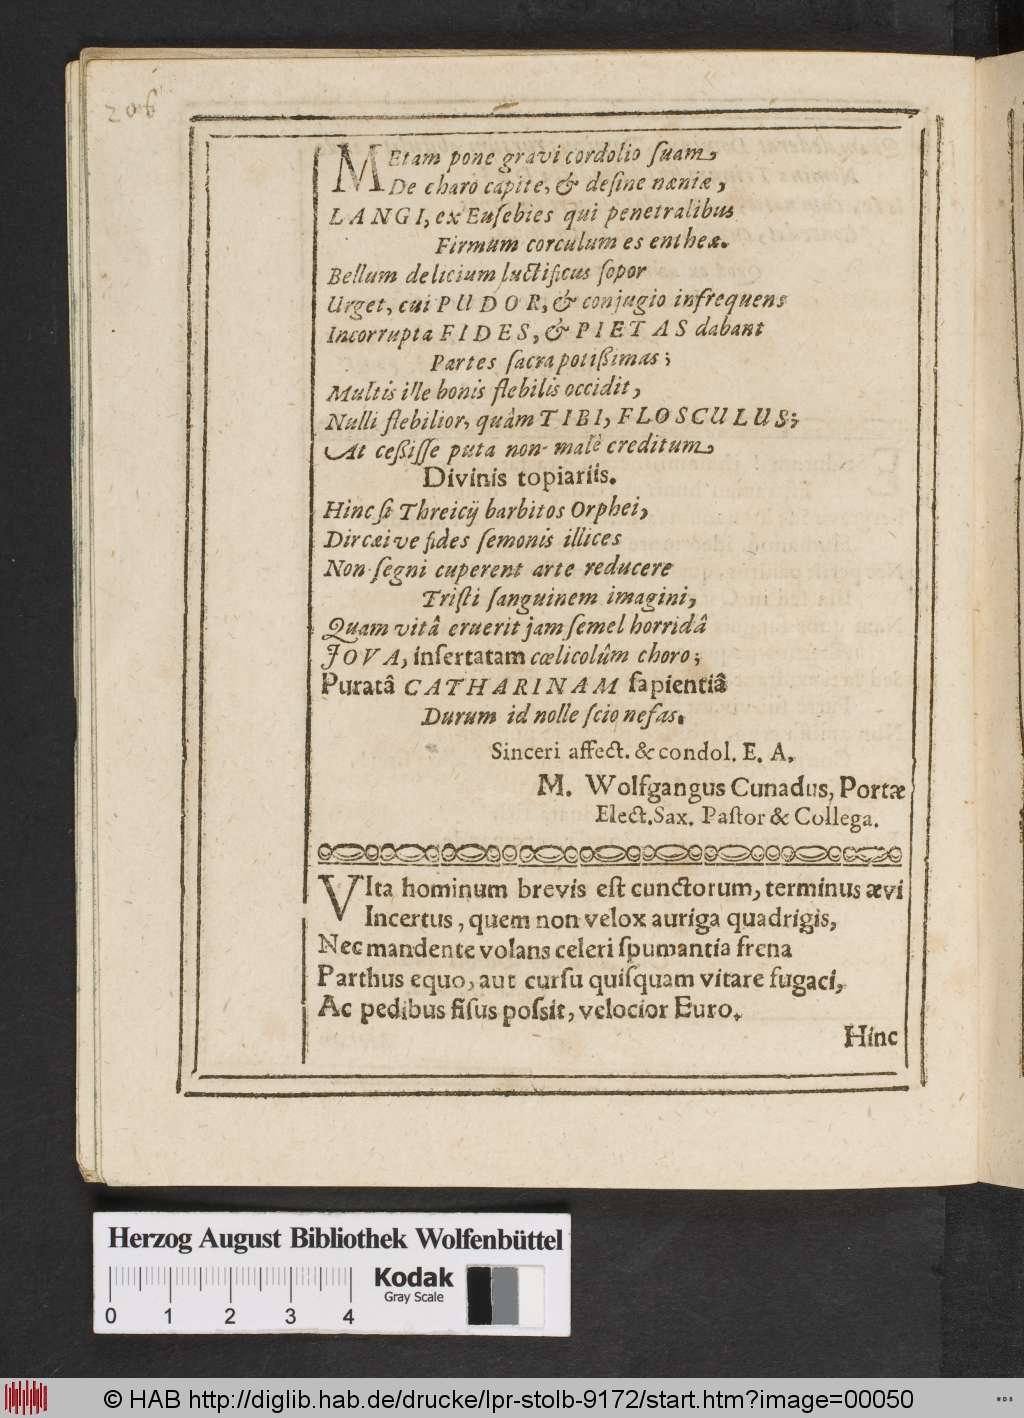 206
MEtam pone gravi cordolio ſuam,
De charo capite, & deſine næniæ,
LANGI, ex Euſebies qui penetralibus
Firmum corculum es entheæ.
Bellum delicium luctificus ſopor
Urget, cui PUDOR, & conjugio infrequens
Incorrupta FIDES, & PIETAS dabant
Partes ſacra potißimas;
Multis ille bonis flebilis occidit,
Nulli flebilior, quàm TIBI, FLOSCULUS;
At ceßiſſe puta non malè creditum
Divinis topiariis.
Hinc ſi Threicij barbitos Orphei,
Dircæive fides ſemonis illices
Non ſegni cuperent arte reducere
Triſti ſanguinem imagini,
Quam vitâ eruerit jam ſemel horridâ
JOVA, inſertatam cœlicolûm choro;
Puratâ CATHARINAM ſapientiâ
Durum id nolle ſcio nefas.
Sinceri affect. & condol. E. A.
M. Wolfgangus Cunadus, Portæ
Elect. Sax. Paſtor & Collega.
VIta hominum brevis eſt cunctorum, terminus ævi
Incertus, quem non velox auriga quadrigis,
Nec mandente volans celeri ſpumantia frena
Parthus equo, aut curſu quiſquam vitare fugaci,
Ac pedibus fiſus poſsit, velocior Euro.
Hinc
Herzog August Bibliothek Wolfenbüttel
Kodak
Gray Scale
0 1 2 3 4
© HAB http://diglib.hab.de/drucke/lpr-stolb-9172/start.htm?image=00050